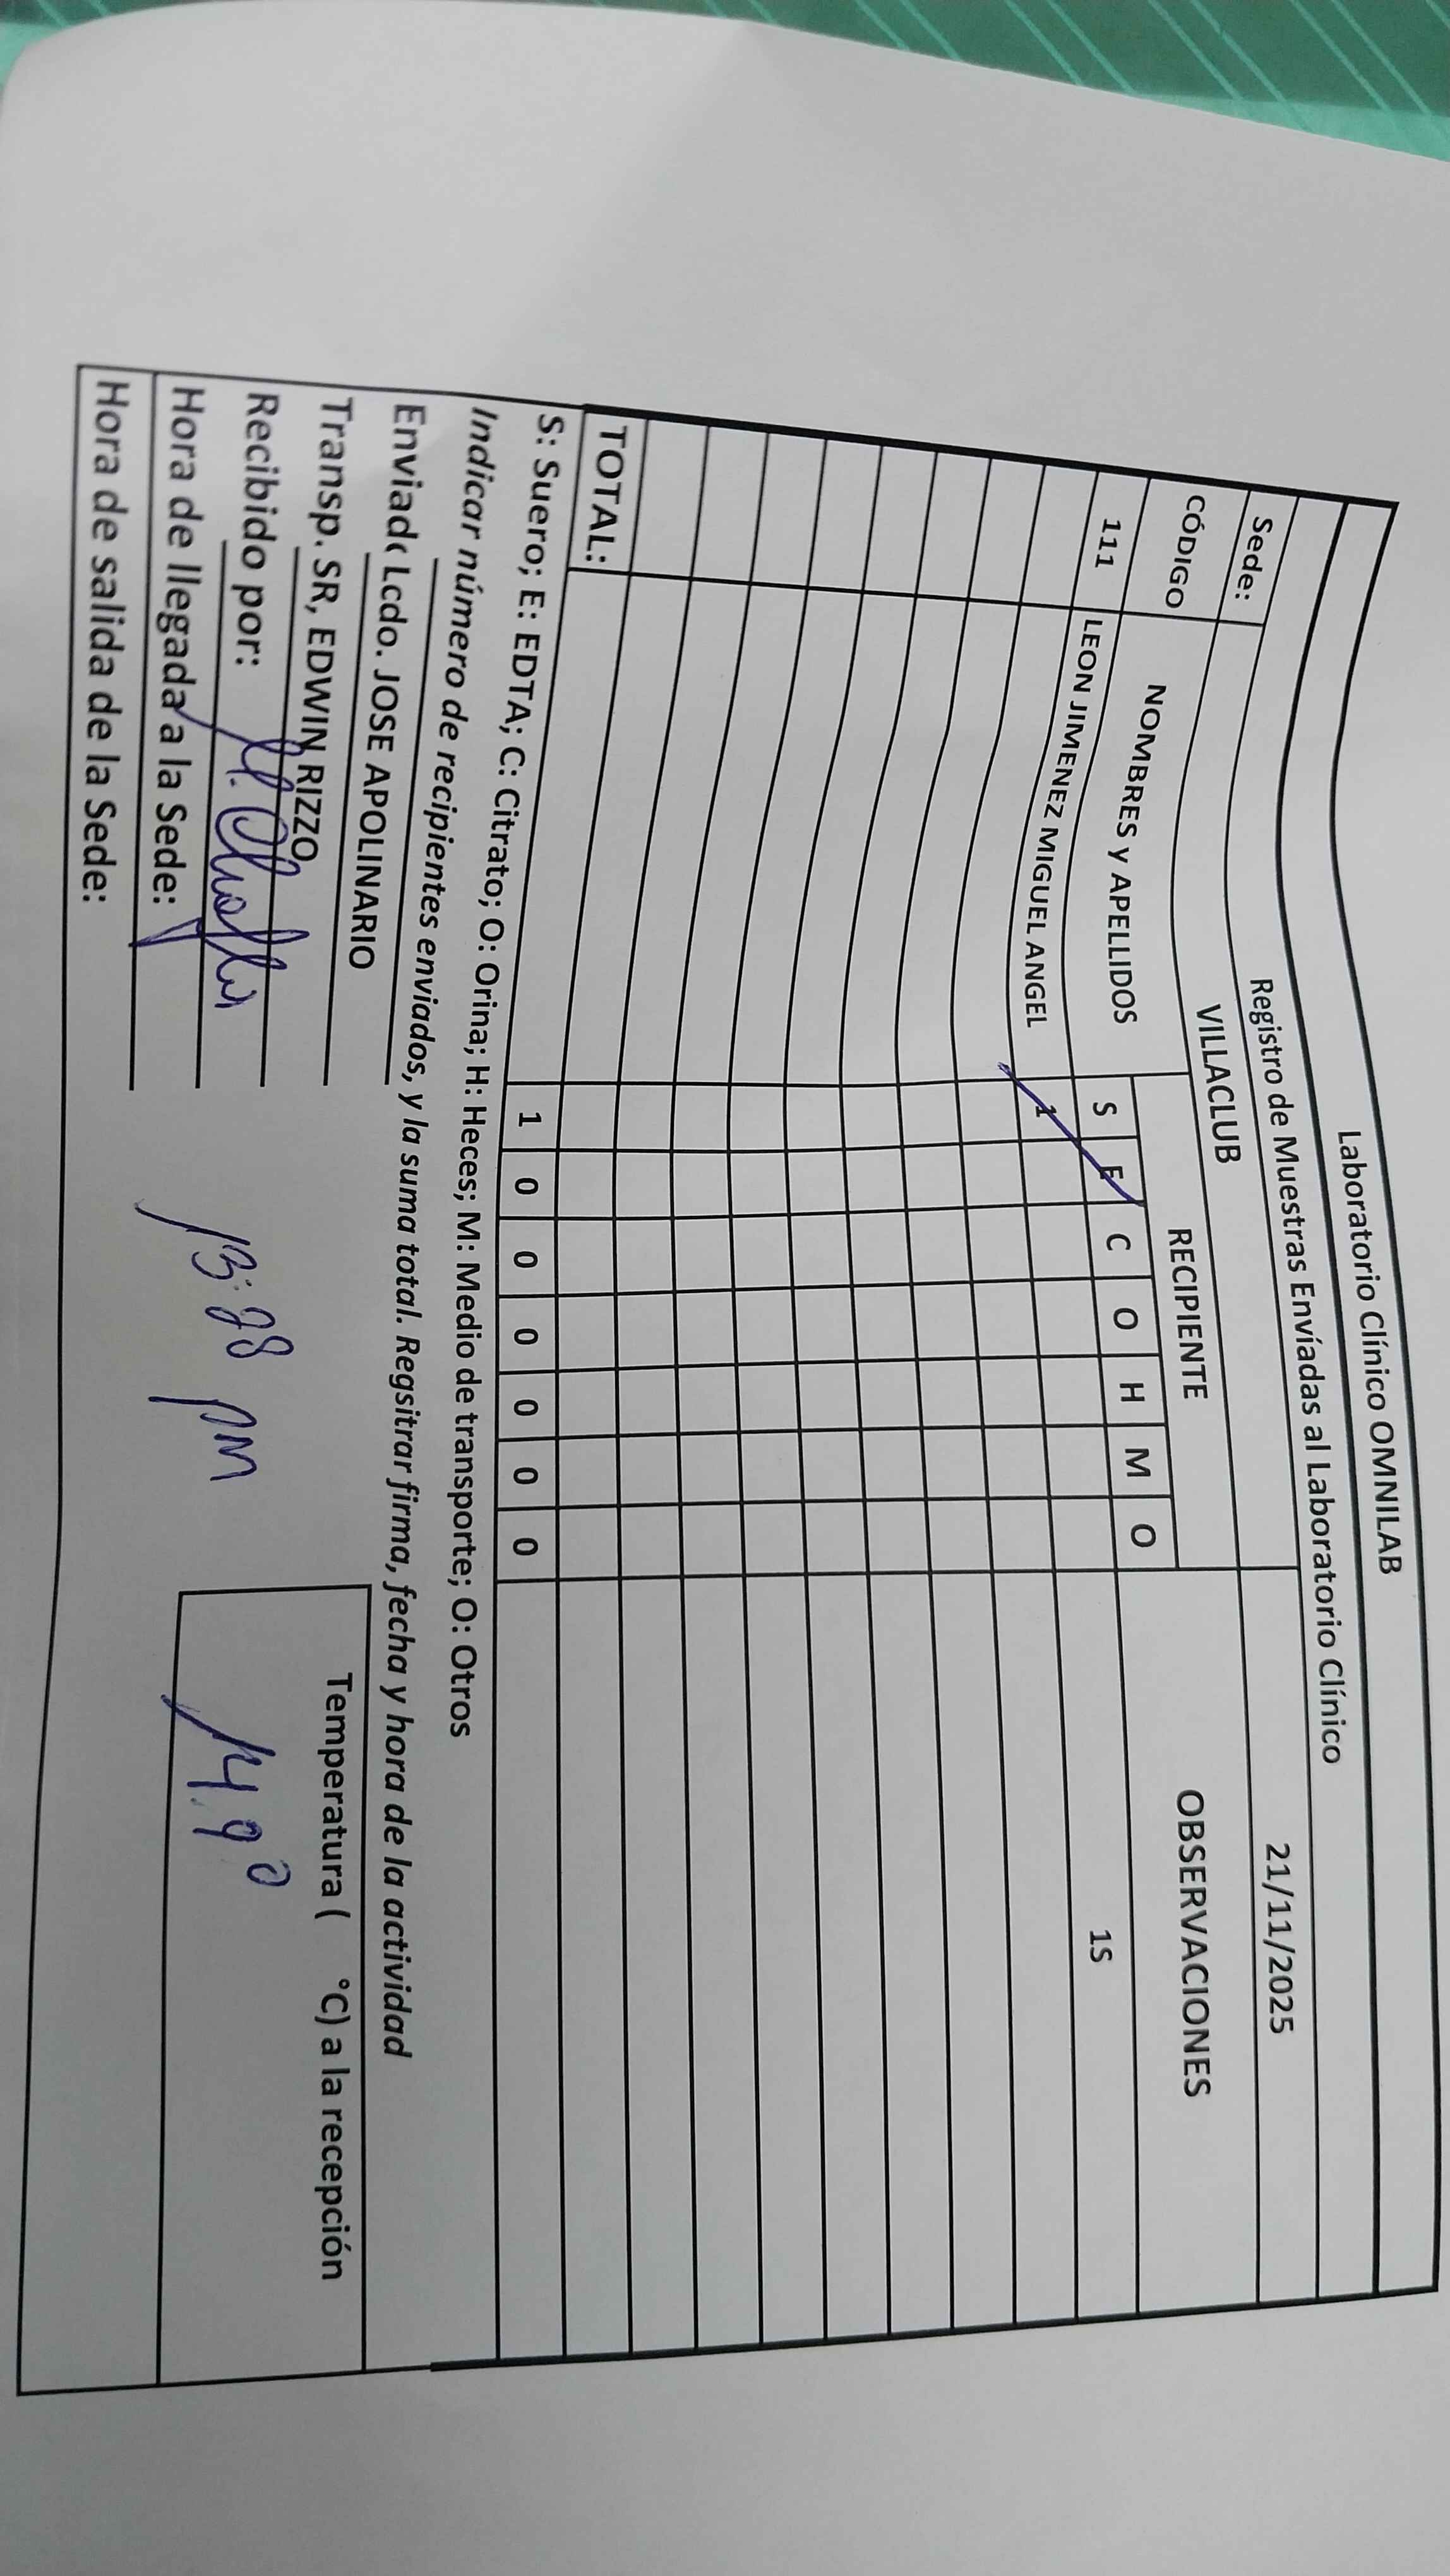 Laboratorio Clínico OMNILAB
Registro de Muestras Envíadas al Laboratorio Clínico
Sede: VILLACLUB 21/11/2025
CÓDIGO NOMBRES y APELLIDOS RECIPIENTE OBSERVACIONES
S E C O H M O
111 LEON JIMENEZ MIGUEL ANGEL 1 1S
TOTAL: 1 0 0 0 0 0 0
S: Suero; E: EDTA; C: Citrato; O: Orina; H: Heces; M: Medio de transporte; O: Otros
Indicar número de recipientes enviados, y la suma total. Regsitrar firma, fecha y hora de la actividad
Enviad Lcdo. JOSE APOLINARIO
Transp. SR, EDWIN RIZZO
Temperatura ( °C) a la recepción
Recibido por:
Hora de llegada a la Sede: 13:28 PM
Hora de salida de la Sede: